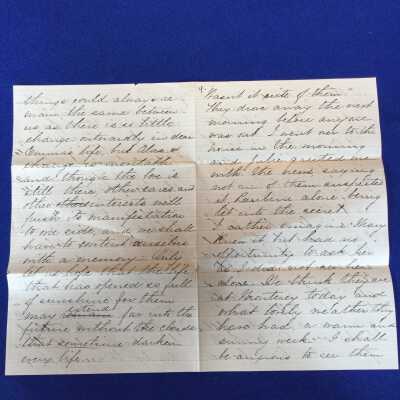 things could always re-
main the same between
us as there is so little
change outwardly in dear
life, but Alas a
change is inevitable
and though the love is
still there other cares and
other interests will
push to manifestation
to one side, and we shall
have to content ourselves
with a memory. Only
let us hope that the life
that has opened so full
of sunshine for them
may extend far into the
future without the clouds
that sometimes darken
every life.
Wasn't it cute of them"
They drove away the next
morning before anyone
was up. I went over to the
house in the morning
and greeted me
with the news saying
not one of them suspected
it alone being
let into the secret
I rather imagine Mary
knew it but had no
opportunity to ask her
as I did not see her
alone. We think they are
at Monterey today and
what lovely weather they
have had, a warm and
sunny week. I shall
be anxious to see them